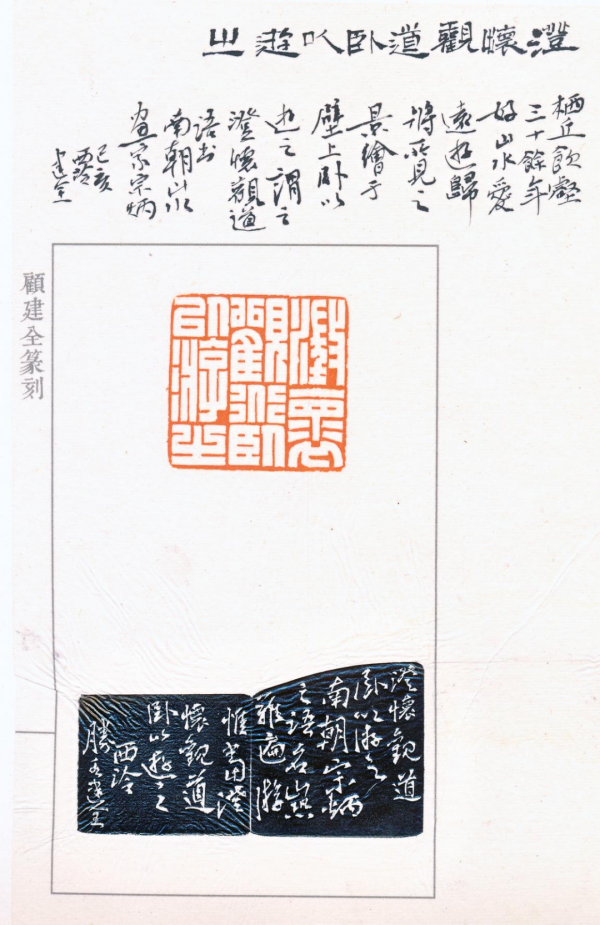 澄懷觀道卧以遊之
栖丘飲壑
三十餘年
好山水愛
遠遊歸
將所見之
景繪于
壁上卧以
遊之謂之
澄懷觀道
語出
南朝山水
畫家宗炳
己亥
西泠
建全
顧建全篆刻
澄懷
觀道卧
以游之
澄懷觀道
卧以游之
南朝宗炳
之語名山恐
難遍游
惟當澄
懷觀道
卧以遊之
西泠
建全